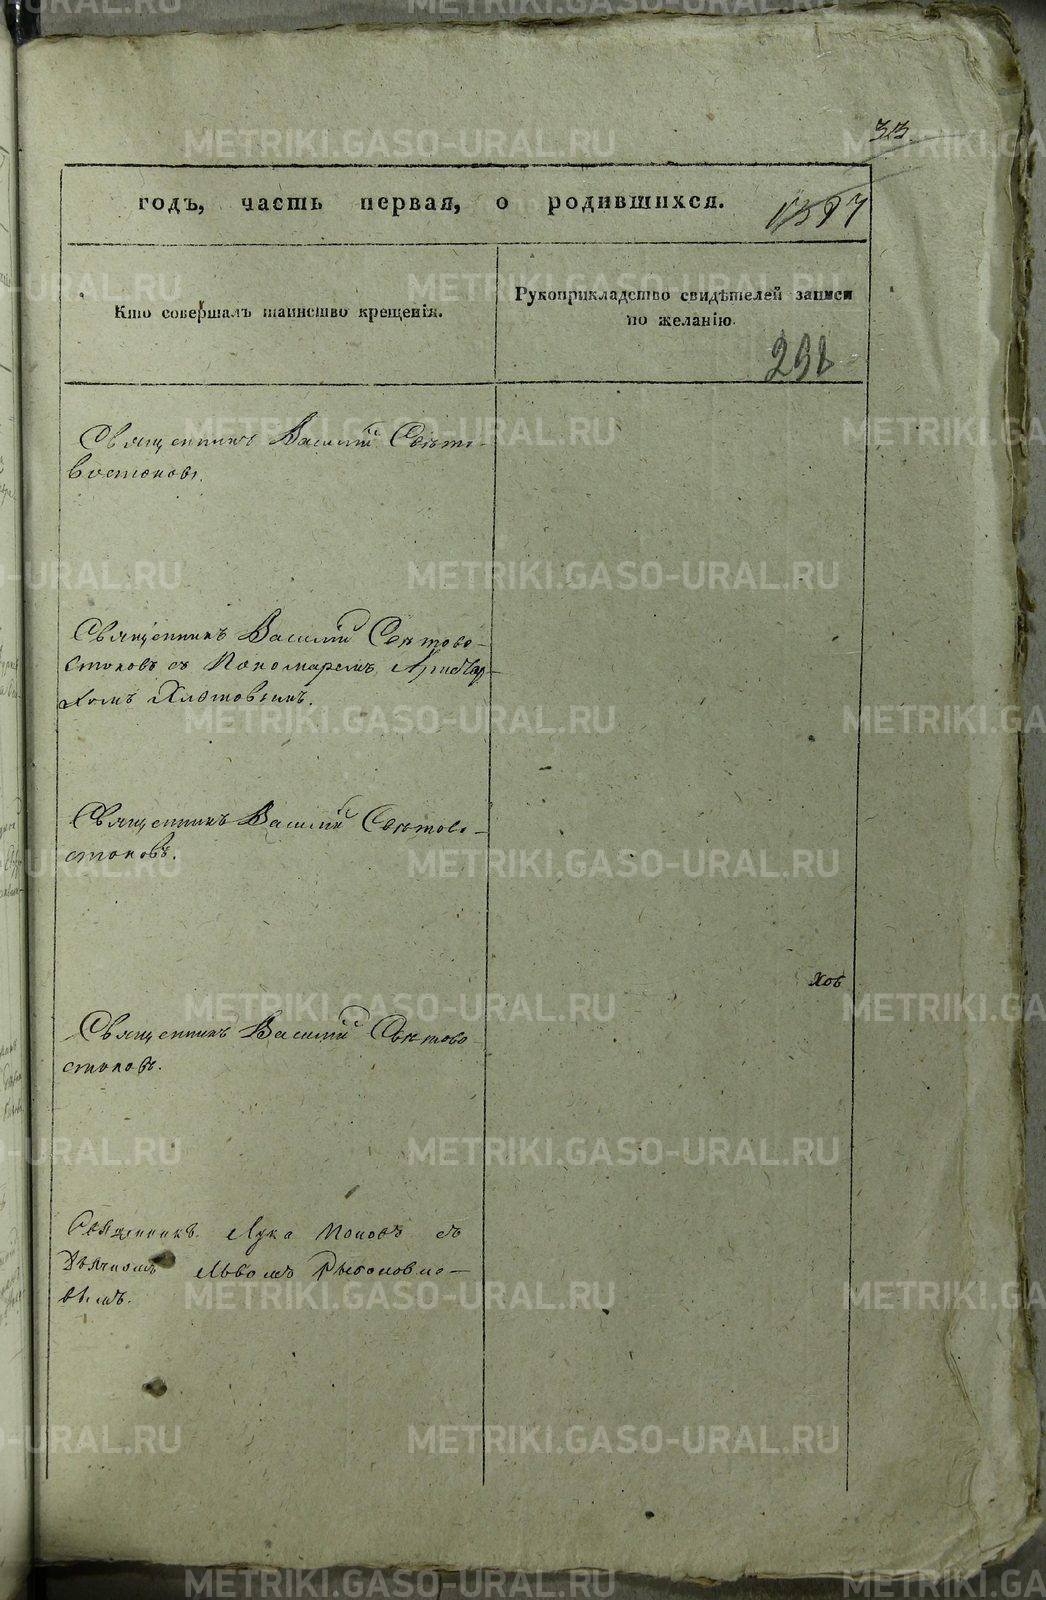 33
годъ, часть первая, о родившихся.
Кто совершалъ таинство крещенія.
Рукоприкладство свидѣтелей записи
по желанію.
Священникъ Василій Свѣто-
востоковъ.
Священникъ Василій Свѣтово-
стоковъ съ Пономаремъ Аристар-
хомъ
Священникъ Василій Свѣтово-
стоковъ.
хов
Священникъ Василій Свѣтово-
стоковъ.
Священникъ Лука Поповъ съ
Дьячкомъ Львомъ
METRIKI.GASO-URAL.RU